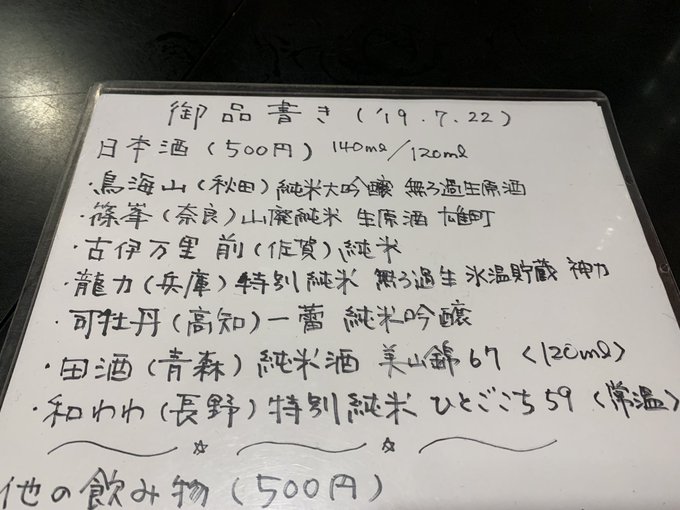 御品書き('19.7.22)
日本酒(500円) 140ml/120ml
・鳥海山(秋田)純米大吟醸 無ろ過生原酒
・篠峯(奈良)山廃純米 生原酒 雄町
・古伊万里 前(佐賀)純米
・龍力(兵庫)特別純米 無ろ過生 氷温貯蔵 神力
・司牡丹(高知)一蕾 純米吟醸
・田酒(青森)純米酒 美山錦67 〈120ml〉
・和和わ(長野)特別純米 ひとごこち59 〈常温〉
他の飲み物(500円)